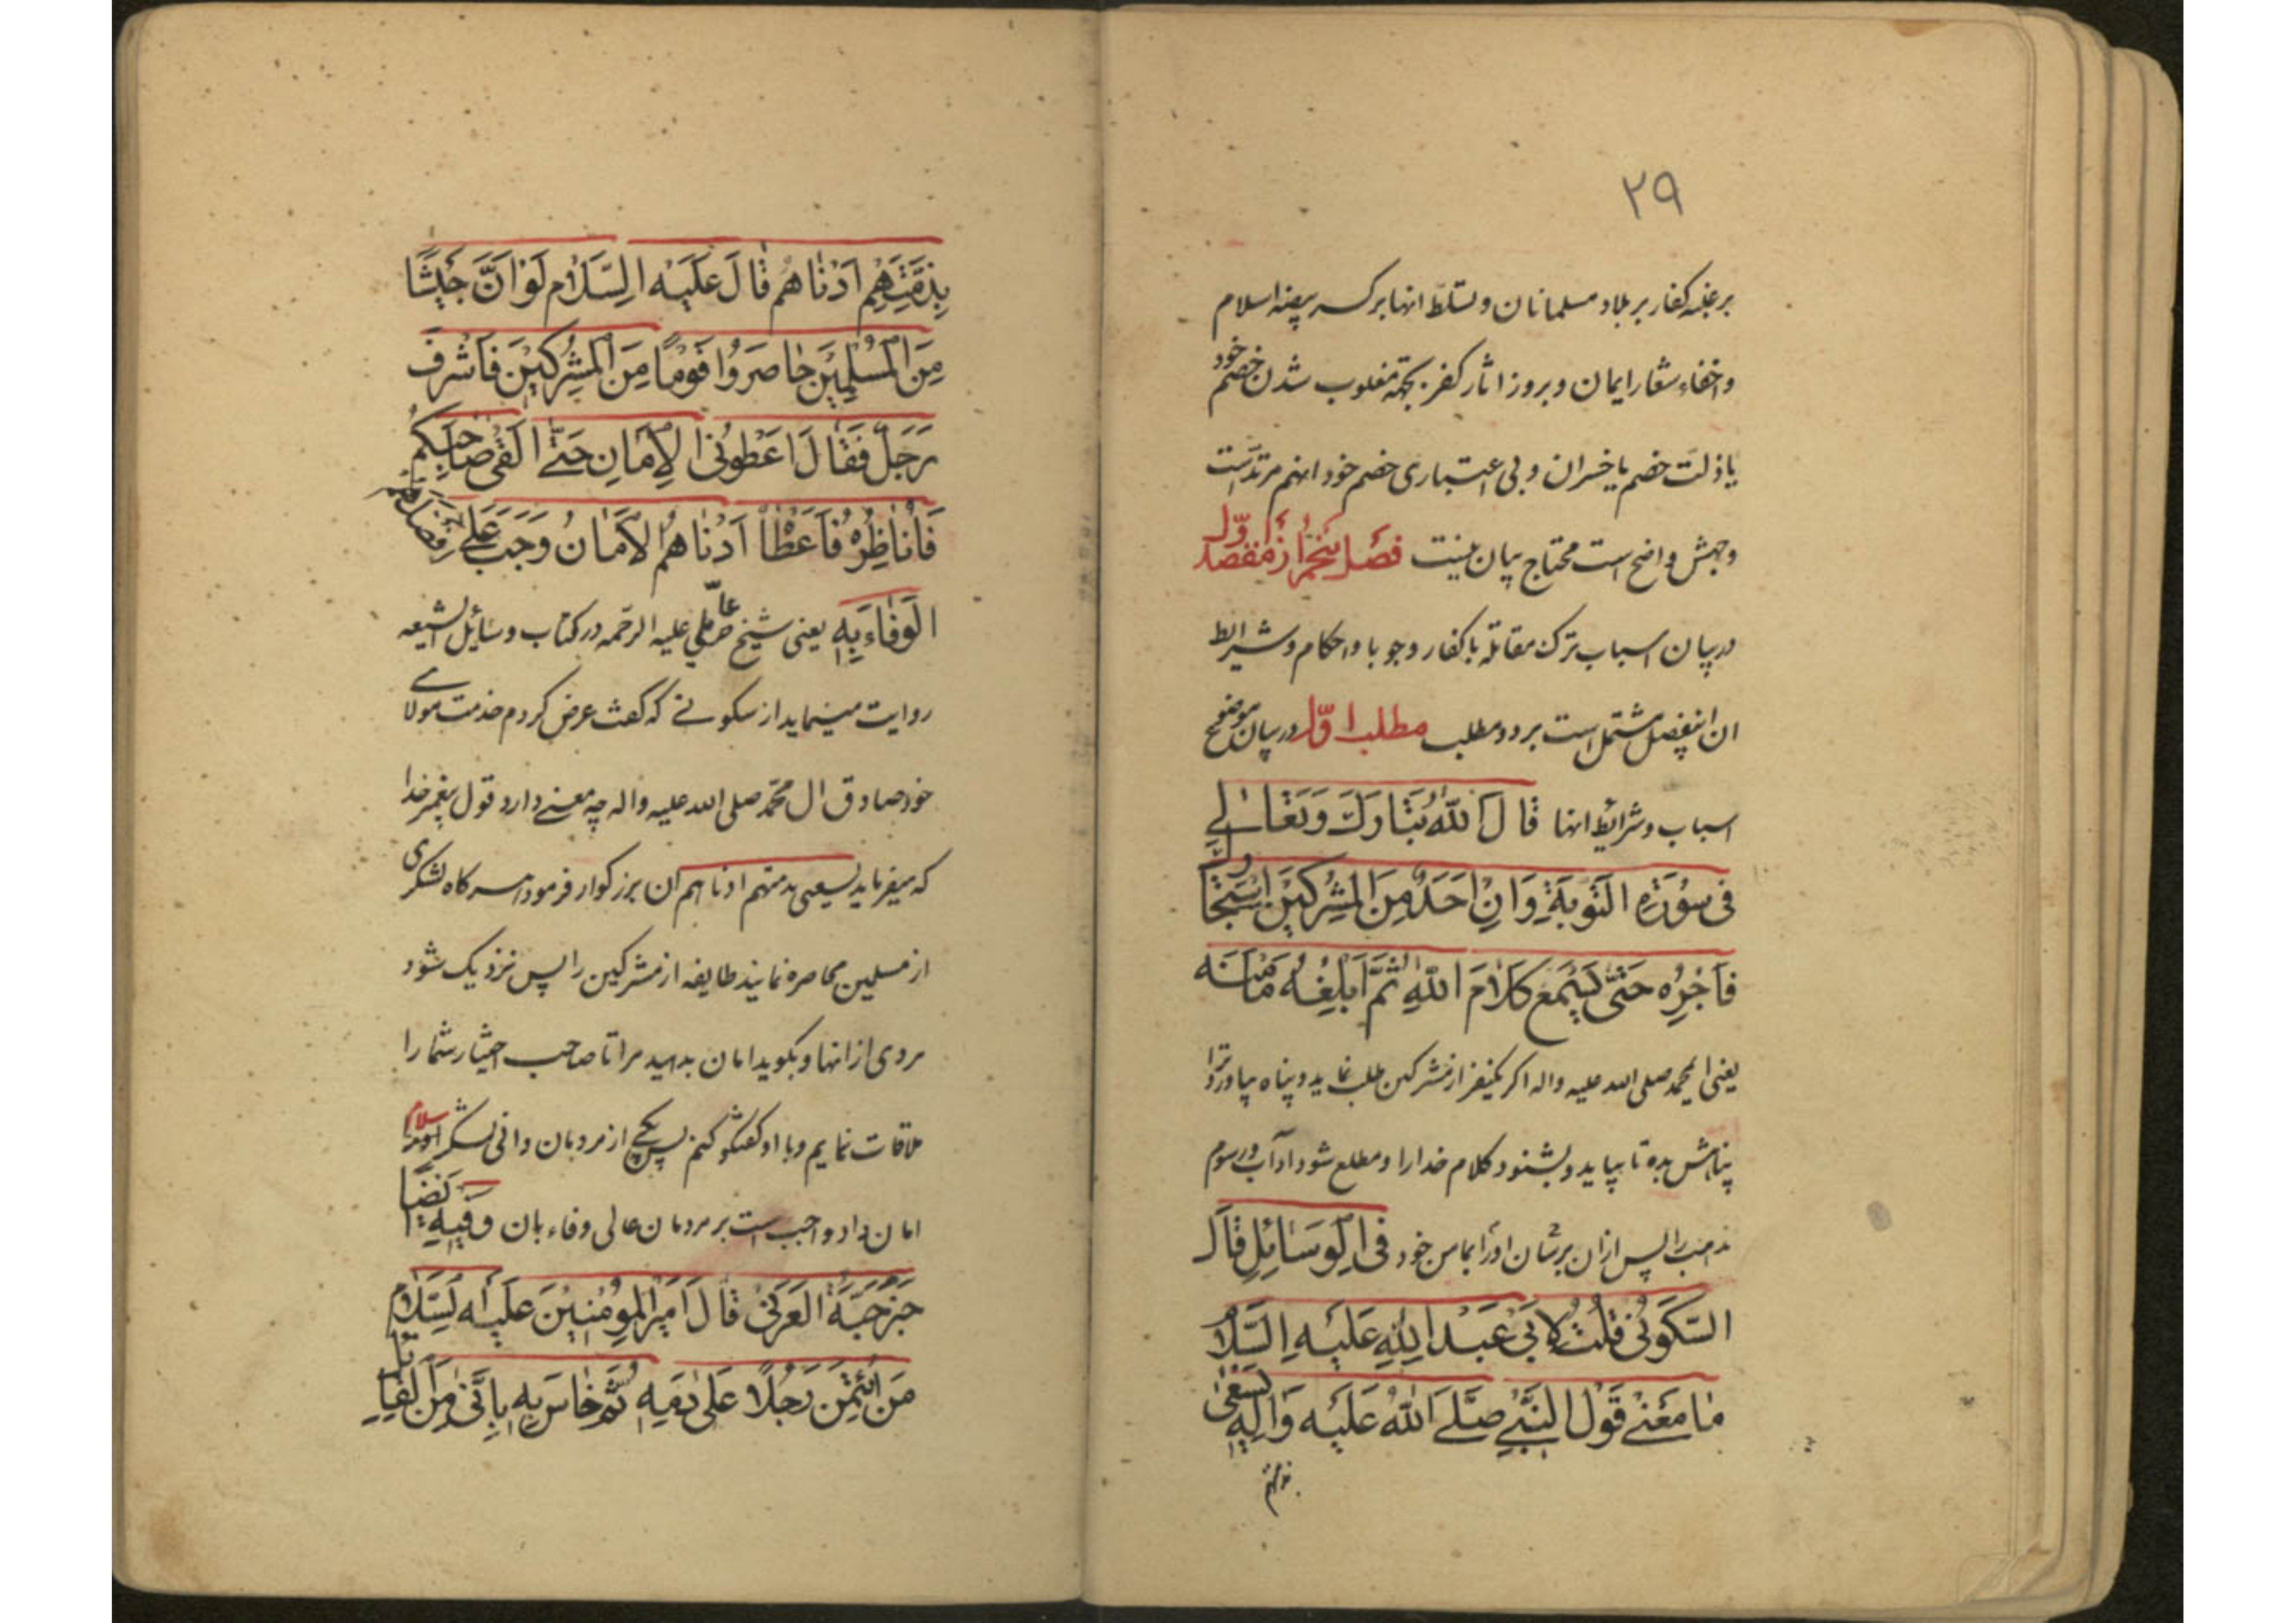 ۲۹
بر غلبه کفار بر بلاد مسلمانان و تسلط انها بر کسر بیضه اسلام
و اخفاء شعار ایمان و بروز اثار کفر بجهة مغلوب شدن خصم خود
یا ذلت خصم یا خسران و بی اعتباری خصم خود اینهم مرتد است
وجهش واضح است محتاج بیان نیست فصل پنجم از مقصد اوّل
در بیان اسباب ترک مقاتله با کفار وجوبا و احکام و شرایط
ان اینفصل مشتمل است بر دو مطلب مطلب اوّل در بیان توضیح
اسباب و شرائط انها قَالَ اللّهُ تَبَارَكَ وَتَعَالی
فی سُوْرَةِ التَّوبَةِ وَاِنْ اَحَدٌ مِنَ المُشْرِکیْنَ اسْتَجَارَكَ
فَاَجْرِهُ حَتّی یَسْمَع کَلَامَ اللّهِ ثُمَّ اَبْلِغْهُ مَاْمَنَه
یعنی ایمحمد صلی الله علیه واله اکر یکنفر از مشرکین طلب نماید و پناه بیاورد ترا
پناهش بده تا بیاید و بشنود کلام خدا را و مطلع شود اداب و رسوم
مذهب را پس ازان برسان اورا بمامن خود فی الوَسَائِلِ قَالَ
السَّکُونی قُلْتُ لِاَبی عَبْدِ اللهِ عَلَیْهِ السَّلَامُ
مٰا مَعْنی قَوْلِ النَّبیِّ صَلَّی اللّهُ عَلَیْهِ وَالِهِ یَسْعٰی
بذمتهم
بِذِمَّتِهِمْ اَدْنَاهُمْ قَالَ عَلَیْهِ السَّلَامُ لَوْ اَنَّ جَیْشًا
مِنَ الْمُسْلِمِیْنَ حَاصَرُوا قَوْمًا مِنَ الْمُشْرِکیْنَ فَاَشْرَفَ
رَجُلٌ فَقَالَ اَعْطُونی الْاَمَانِ حَتّی اَلْقٰی صَاحِبَکُمْ
فَاُنَاظِرُهُ فَاَعْطَاْ اَدْنَاهُمُ الْاَمَانُ وَجَبَ عَلی اَفْضَلِهِمْ
الْوَفَاءُ بِهِ یعنی شیخ حر عاملی علیه الرحمه در کتاب وسائل الشیعه
روایت مینماید از سکونی که کفت عرض کردم خدمت مولای
خود صادق ال محمّد صلی الله علیه واله چه معنی دارد قول پیغمبر خدا
که میفرماید یسعی بذمتهم ادناهم ان بزرکوار فرمود هرکاه لشکری
از مسلمین محاصره نمایند طایفه از مشرکین را پس نزدیک شود
مردی از انها و بکوید امان بدهید مرا تا صاحب اختیار شما را
ملاقات نمایم و با او کفتکو کنم پس یکی از مردمان دانی لشکر اسلام
امان داد واجب است بر مردمان عالی وفاء بان وَ فِیْهِ اَیْضًا
خَبَرُ حَبَّةَ العَرَنی قَالَ اَمیْرُ المُؤْمِنِیْنَ عَلَیْهِ السَّلَامُ
مَنِ ائْتَمَنَ رَجُلًا عَلی دَمِهِ ثُمَّ خَاسَ بِهِ فَاِنّی مِنَ الْقَاتِلِ